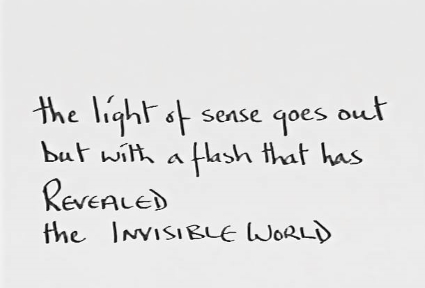 the light of sense goes out
but with a flash that has
REVEALED
the INVISIBLE WORLD